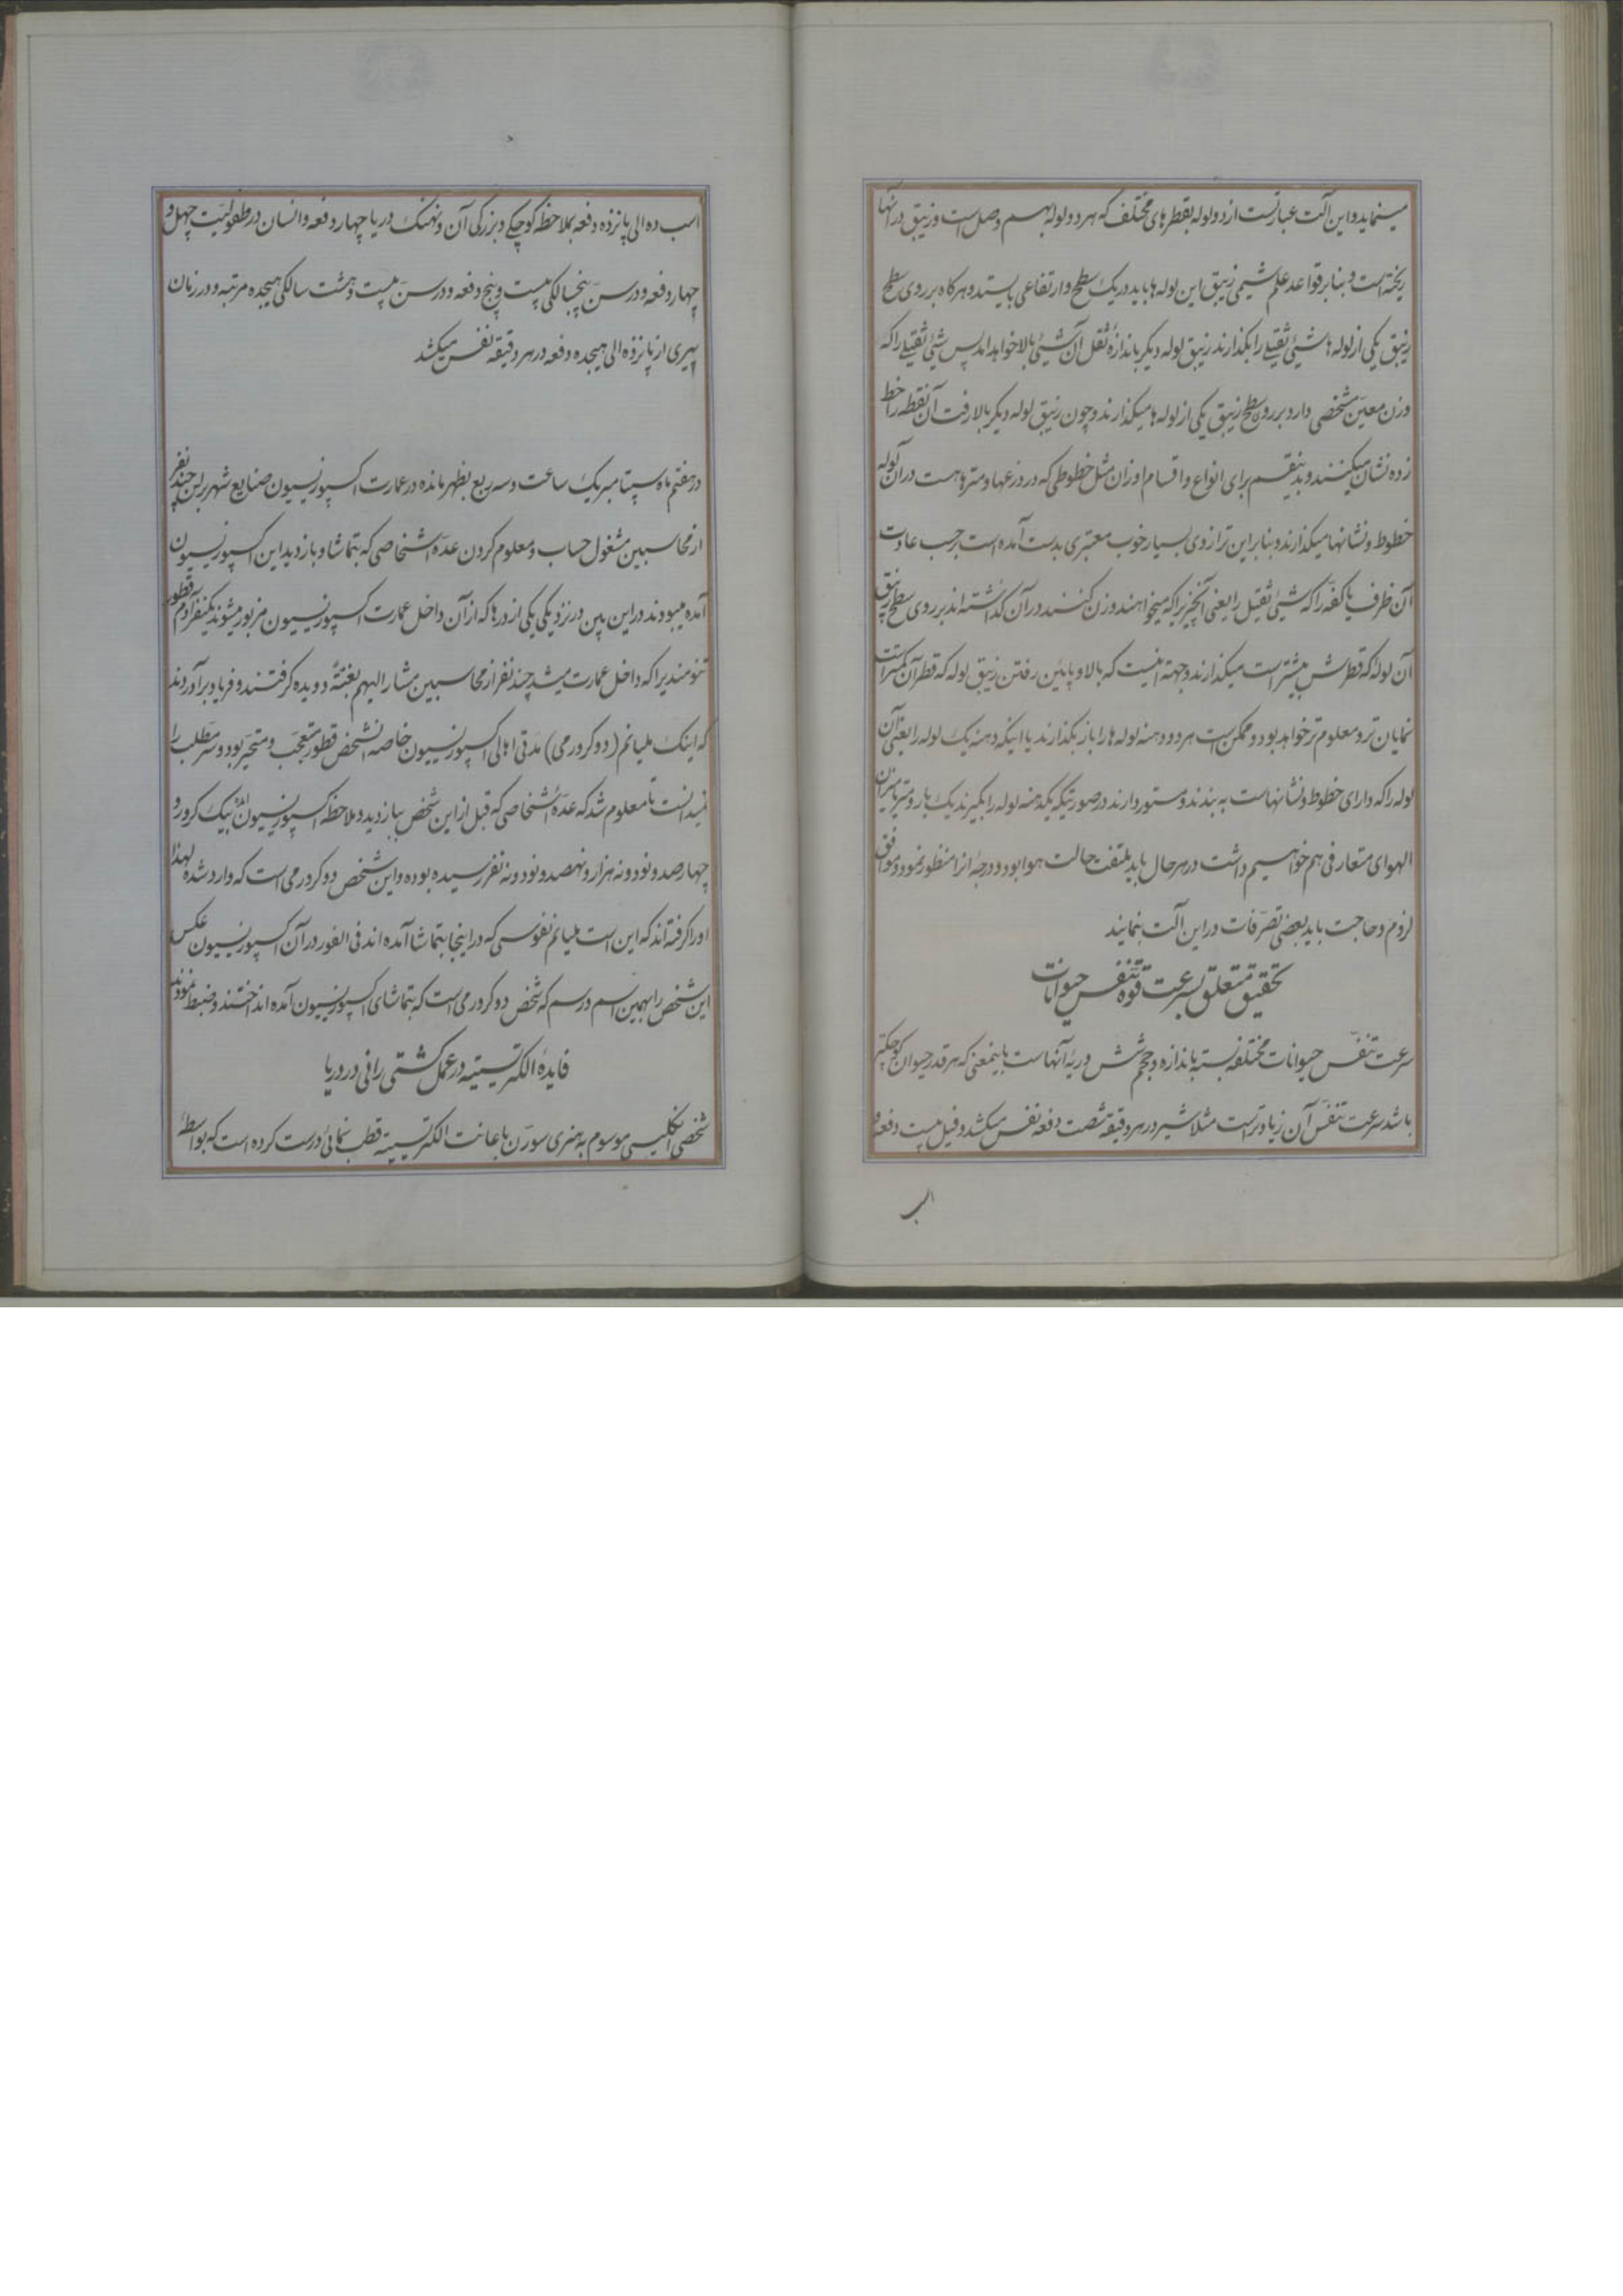 مینماید و این آلت عبارتست از دو لوله بقطرهای مختلف که هر دو لوله بهم وصل است و زیبق در آنها
ریخته است و بنابر قواعد علم شیمی زیبق این لوله‌ها باید در یک سطح و ارتفاعی بایستد و هر کاه بر روی سطح
زیبق یکی از لوله‌ها شیئی ثقیلی را بکذارند زیبق لوله دیکر باندازهٔ ثقل آن شیئی بالا خواهد آمد پس شیئی ثقیلی را که
وزن معین مشخصی دارد بر روی سطح زیبق یکی از لوله‌ها میکذارند و چون زیبق لوله دیکر بالا رفت آن نقطه را خط
زده نشان میکنند و بدینقسم برای انواع و اقسام اوزان مثل خطوطی که در ذرعها و مترها هست در آن لوله
خطوط و نشانها میکذارند و بنابراین ترازوی بسیار خوب معتبری بدست آمده است بر حسب عادت
آن ظرف یا کفه را که شیئی ثقیل را یعنی آنچیزیرا که میخواهند وزن کنند در آن کذاشته‌اند بر روی سطح زیبق
آن لوله که قطرش بیشتر است میکذارند و جهته اینست که بالا و پایین رفتن زیبق لوله که قطر آن کمتر است
نمایان‌تر و معلوم‌تر خواهد بود و ممکن است هر دو دهنه لوله‌ها را باز بکذارند یا اینکه دهنه یک لوله را یعنی آن
لوله را که دارای خطوط و نشانهاست به بندند و مستور دارند در صورتیکه یکدهنه لوله را بکیرند یک بارومتر یا میزان
الهوای متعارفی هم خواهیم داشت در هر حال باید ملتفت حالت هوا بود و درجهٔ آنرا منظور نمود و موافق
لزوم و حاجت باید بعضی تصرفات در این آلت بنمایند
تحقیق متعلق بسرعت قوه تنفس حیوانات
سرعت تنفس حیوانات مختلفه بسته باندازه و حجم شش و ریهٔ آنهاست باینمعنی که هر قدر حیوان کوچکتر
باشد سرعت تنفس آن زیادتر است مثلا شیر در هر دقیقه شصت دفعه نفس میکشد و فیل بیست دفعه و
اسب
اسب ده الی پانزده دفعه بملاحظه کوچکی و بزرکی آن و نهنک دریا چهار دفعه و انسان در طفولیت چهل و
چهار دفعه و در سن پنجسالکی بیست و پنج دفعه و در سن بیست و هشت سالکی هیجده مرتبه و در زمان
پیری از پانزده الی هیجده دفعه در هر دقیقه نفس میکشد
در هفتم ماه سپتامبر یک ساعت و سه ربع بظهر مانده در عمارت اکسپوزیسیون صنایع شهر برلین چند نفر
از محاسبین مشغول حساب و معلوم کردن عده اشخاصی که بتماشا و بازدید این اکسپوزیسیون
آمده میبودند در این بین در نزدیکی یکی از درها که از آن داخل عمارت اکسپوزیسیون مزبور میشوند یکنفر آدم قطور
تنومندیرا که داخل عمارت میشد چند نفر از محاسبین مشار الیهم بغتةً دویده کرفتند و فریاد برآوردند
که اینک ملیانم (دو کرورمی) مدتی اهالی اکسپوزیسیون خاصه آنشخص قطور متعجب و متحیر بود و سر مطلب را
نمیدانست تا معلوم شد که عدهٔ اشخاصی که قبل از این شخص ببازدید و ملاحظه اکسپوزیسیون آمده بیک کرور و
چهارصد و نود و نه هزار و نهصد و نود و نه نفر رسیده بوده و این شخص دو کرورمی است که وارد شده لهذا
او را کرفته‌اند که این است ملیانم نفوسی که در اینجا بتماشا آمده‌اند فی الفور در آن اکسپوزیسیون عکس
این شخص را بهمین اسم و رسم که شخص دو کرورمی است که بتماشای اکسپوزیسیون آمده انداختند و ضبط نمودند
فایدهٔ الکتریسیته در عمل کشتی رانی در دریا
شخصی انکلیسی موسوم به هنری سورن باعانت الکتریسیته قطب نمائی درست کرده است که بواسطهٔ